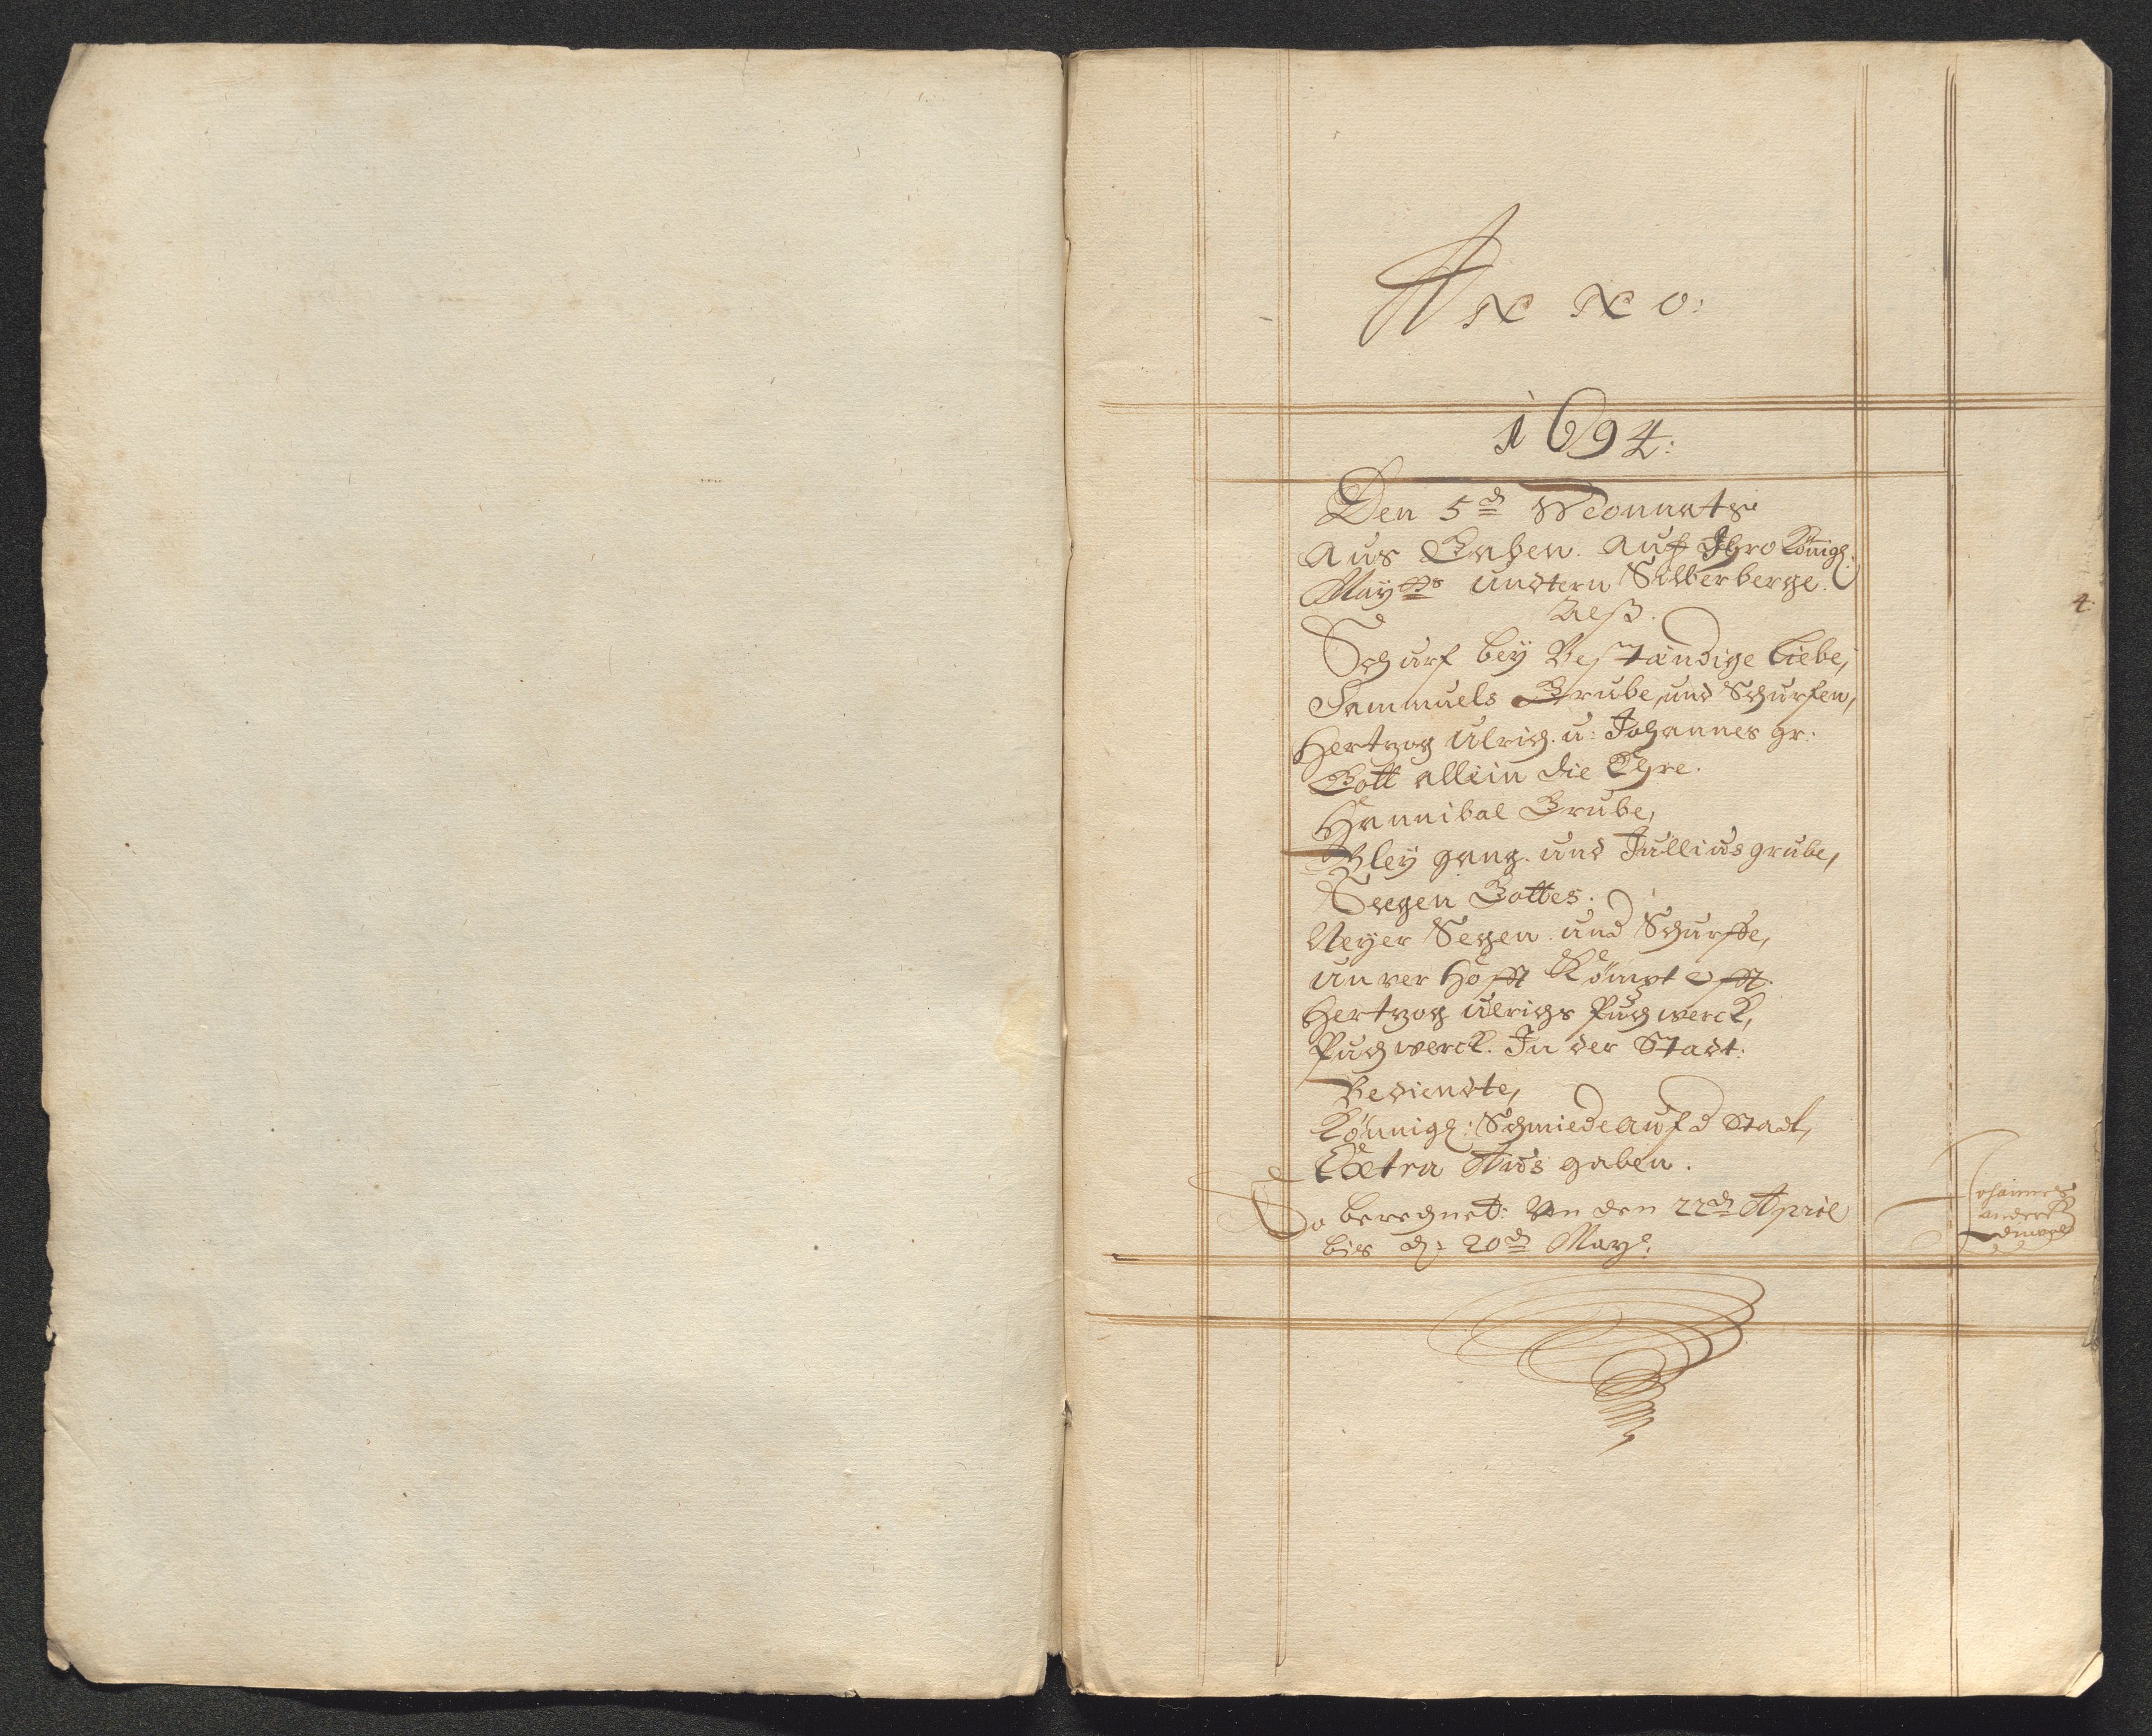 Anno:
1694:
Den 5d Monnats
Aus Gaben. Auf Ihro Königl:
Maytts Undtern Silberberge.
Alß.
Schurf bey Beständige Liebe,
Sammuels Grube, und Schurfen,
Hertzog Ulrich. u: Johannes gr:
Gott allein die Ehre.
Hannibal Grube,
Bley gang. und Jullius grube,
Seegen Gottes.
Neyer Seegen. und Schurffe,
Un ver Hofft Kömpt offt.
Hertzog Ulrichs Puchwerck,
Puchwerck. In der Stadt:
Bediendte,
Könnigl: Schmiede auf d Stadt,
Extra Aus gaben.
So berechnet: Von den 22d April
bies d: 20d May.
4
Johannes